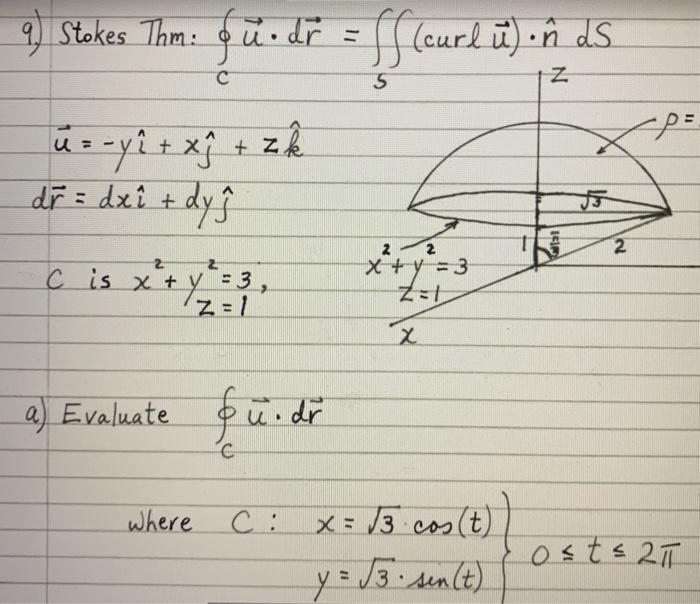 9.) Stokes Thm: ∮_C u⃗ · dr⃗ = ∬_S (curl u⃗) · n̂ dS
z
ρ =
u⃗ = -yî + xĵ + zk̂
dr⃗ = dxî + dyĵ
√3
1 π/3 2
C is x² + y² = 3,
z = 1
x² + y² = 3
z = 1
x
a) Evaluate ∮_C u⃗ · dr⃗
where C: x = √3 · cos(t)
y = √3 · sen(t) } 0 ≤ t ≤ 2π